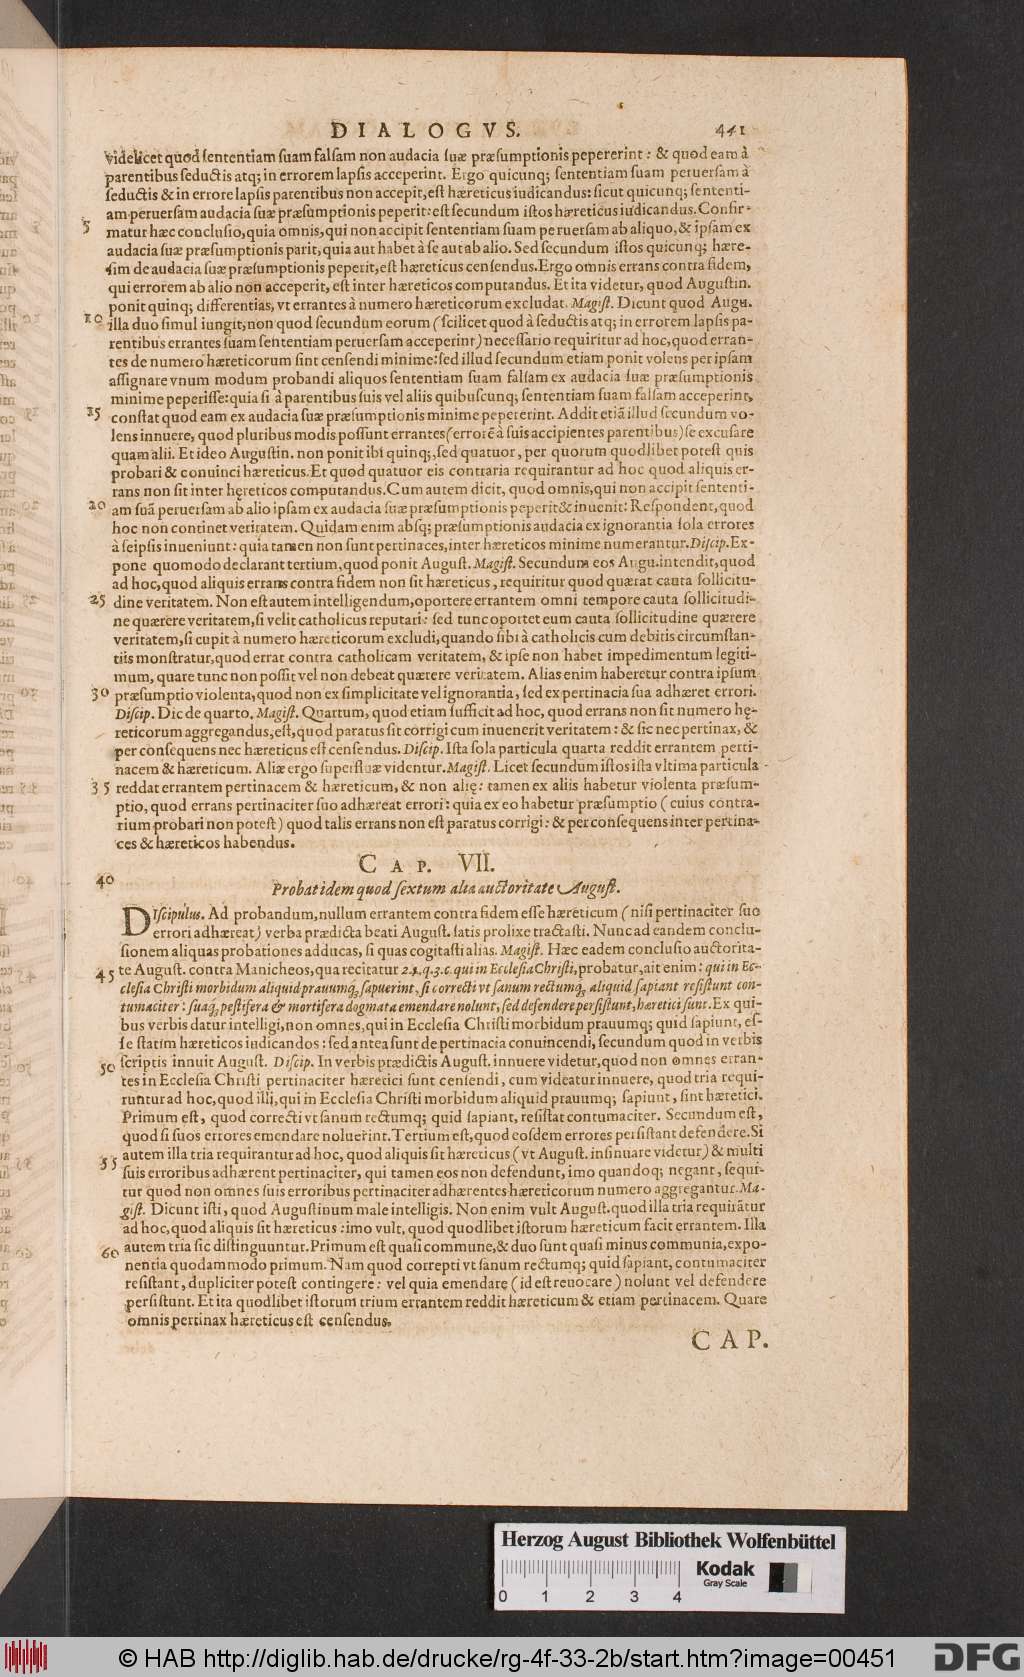 DIALOGVS. 441
videlicet quod sententiam suam falsam non audacia suæ præsumptionis pepererint: & quod eam à
parentibus seductis atq; in errorem lapsis acceperint. Ergo quicunq; sententiam suam peruersam à
seductis & in errore lapsis parentibus non accepit, est hæreticus iudicandus: sicut quicunq; sententi-
am peruersam audacia suæ præsumptionis peperit: est secundum istos hæreticus iudicandus. Confir-
5 matur hæc conclusio, quia omnis, qui non accipit sententiam suam peruersam ab aliquo, & ipsam ex
audacia suæ præsumptionis parit, quia aut habet à se aut ab alio. Sed secundum istos quicunq; hære-
sim de audacia suæ præsumptionis peperit, est hæreticus censendus. Ergo omnis errans contra fidem,
qui errorem ab alio non acceperit, est inter hæreticos computandus. Et ita videtur, quod Augustin.
ponit quinq; differentias, vt errantes à numero hæreticorum excludat. Magist. Dicunt quod Augu.
10 illa duo simul iungit, non quod secundum eorum (scilicet quod à seductis atq; in errorem lapsis pa-
rentibus errantes suam sententiam peruersam acceperint) necessario requiritur ad hoc, quod erran-
tes de numero hæreticorum sint censendi minime: sed illud secundum etiam ponit volens per ipsam
assignare vnum modum probandi aliquos sententiam suam falsam ex audacia suæ præsumptionis
minime peperisse: quia si à parentibus suis vel aliis quibuscunq; sententiam suam falsam acceperint,
15 constat quod eam ex audacia suæ præsumptionis minime pepererint. Addit etiã illud secundum vo-
lens innuere, quod pluribus modis possunt errantes (errorẽ à suis accipientes parentibus) se excusare
quam alii. Et ideo Augustin. non ponit ibi quinq;, sed quatuor, per quorum quodlibet potest quis
probari & conuinci hæreticus. Et quod quatuor eis contraria requirantur ad hoc quod aliquis er-
rans non sit inter hęreticos computandus. Cum autem dicit, quod omnis, qui non accipit sententi-
20 am suã peruersam ab alio ipsam ex audacia suæ præsumptionis peperit & inuenit: Respondent, quod
hoc non continet veritatem. Quidam enim absq; præsumptionis audacia ex ignorantia sola errores
à seipsis inueniunt: quia tamen non sunt pertinaces, inter hæreticos minime numerantur. Discip. Ex-
pone quomodo declarant tertium, quod ponit August. Magist. Secundum eos Augu. intendit, quod
ad hoc, quod aliquis errans contra fidem non sit hæreticus, requiritur quod quærat cauta sollicitu-
25 dine veritatem. Non est autem intelligendum, oportere errantem omni tempore cauta sollicitudi-
ne quærere veritatem, si velit catholicus reputari: sed tunc oportet eum cauta sollicitudine quærere
veritatem, si cupit à numero hæreticorum excludi, quando sibi à catholicis cum debitis circumstan-
tiis monstratur, quod errat contra catholicam veritatem, & ipse non habet impedimentum legiti-
mum, quare tunc non possit vel non debeat quærere veritatem. Alias enim haberetur contra ipsum
30 præsumptio violenta, quod non ex simplicitate vel ignorantia, sed ex pertinacia sua adhæret errori.
Discip. Dic de quarto. Magist. Quartum, quod etiam sufficit ad hoc, quod errans non sit numero hę-
reticorum aggregandus, est, quod paratus sit corrigi cum inuenerit veritatem: & sic nec pertinax, &
per consequens nec hæreticus est censendus. Discip. Ista sola particula quarta reddit errantem perti-
nacem & hæreticum. Aliæ ergo superfluæ videntur. Magist. Licet secundum istos ista vltima particula
35 reddat errantem pertinacem & hæreticum, & non alię: tamen ex aliis habetur violenta præsum-
ptio, quod errans pertinaciter suo adhæreat errori: quia ex eo habetur præsumptio (cuius contra-
rium probari non potest) quod talis errans non est paratus corrigi: & per consequens inter pertina-
ces & hæreticos habendus.
CAP. VII.
40 Probat idem quod sextum alia auctoritate August.
DIscipulus. Ad probandum, nullum errantem contra fidem esse hæreticum (nisi pertinaciter suo
errori adhæreat) verba prædicta beati August. satis prolixe tractasti. Nunc ad eandem conclu-
sionem aliquas probationes adducas, si quas cogitasti alias. Magist. Hæc eadem conclusio auctorita-
45 te August. contra Manicheos, qua recitatur 24. q. 3. c. qui in Ecclesia Christi, probatur, ait enim: qui in Ec-
clesia Christi morbidum aliquid prauumq; sapuerint, si correcti vt sanum rectumq; aliquid sapiant resistunt con-
tumaciter: suaq; pestifera & mortifera dogmata emendare nolunt, sed defendere persistunt, hæretici sunt. Ex qui-
bus verbis datur intelligi, non omnes, qui in Ecclesia Christi morbidum prauumq; quid sapiunt, es-
se statim hæreticos iudicandos: sed antea sunt de pertinacia conuincendi, secundum quod in verbis
50 scriptis innuit August. Discip. In verbis prædictis August. innuere videtur, quod non omnes erran-
tes in Ecclesia Christi pertinaciter hæretici sunt censendi, cum videatur innuere, quod tria requi-
runtur ad hoc, quod illi, qui in Ecclesia Christi morbidum aliquid prauumq; sapiunt, sint hæretici.
Primum est, quod correcti vt sanum rectumq; quid sapiant, resistat contumaciter. Secundum est,
quod si suos errores emendare noluerint. Tertium est, quod eosdem errores persistant defendere. Si
55 autem illa tria requirantur ad hoc, quod aliquis sit hæreticus (vt August. insinuare videtur) & multi
suis erroribus adhærent pertinaciter, qui tamen eos non defendunt, imo quandoq; negant, sequi-
tur quod non omnes suis erroribus pertinaciter adhærentes hæreticorum numero aggregantur. Ma-
gist. Dicunt isti, quod Augustinum male intelligis. Non enim vult August. quod illa tria requirãtur
ad hoc, quod aliquis sit hæreticus: imo vult, quod quodlibet istorum hæreticum facit errantem. Illa
60 autem tria sic distinguuntur. Primum est quasi commune, & duo sunt quasi minus communia, expo-
nentia quodammodo primum. Nam quod correpti vt sanum rectumq; quid sapiant, contumaciter
resistant, dupliciter potest contingere: vel quia emendare (id est reuocare) nolunt vel defendere
persistunt. Et ita quodlibet istorum trium errantem reddit hæreticum & etiam pertinacem. Quare
omnis pertinax hæreticus est censendus.
CAP.
Herzog August Bibliothek Wolfenbüttel
Kodak
Gray Scale
0 1 2 3 4
© HAB http://diglib.hab.de/drucke/rg-4f-33-2b/start.htm?image=00451
DFG